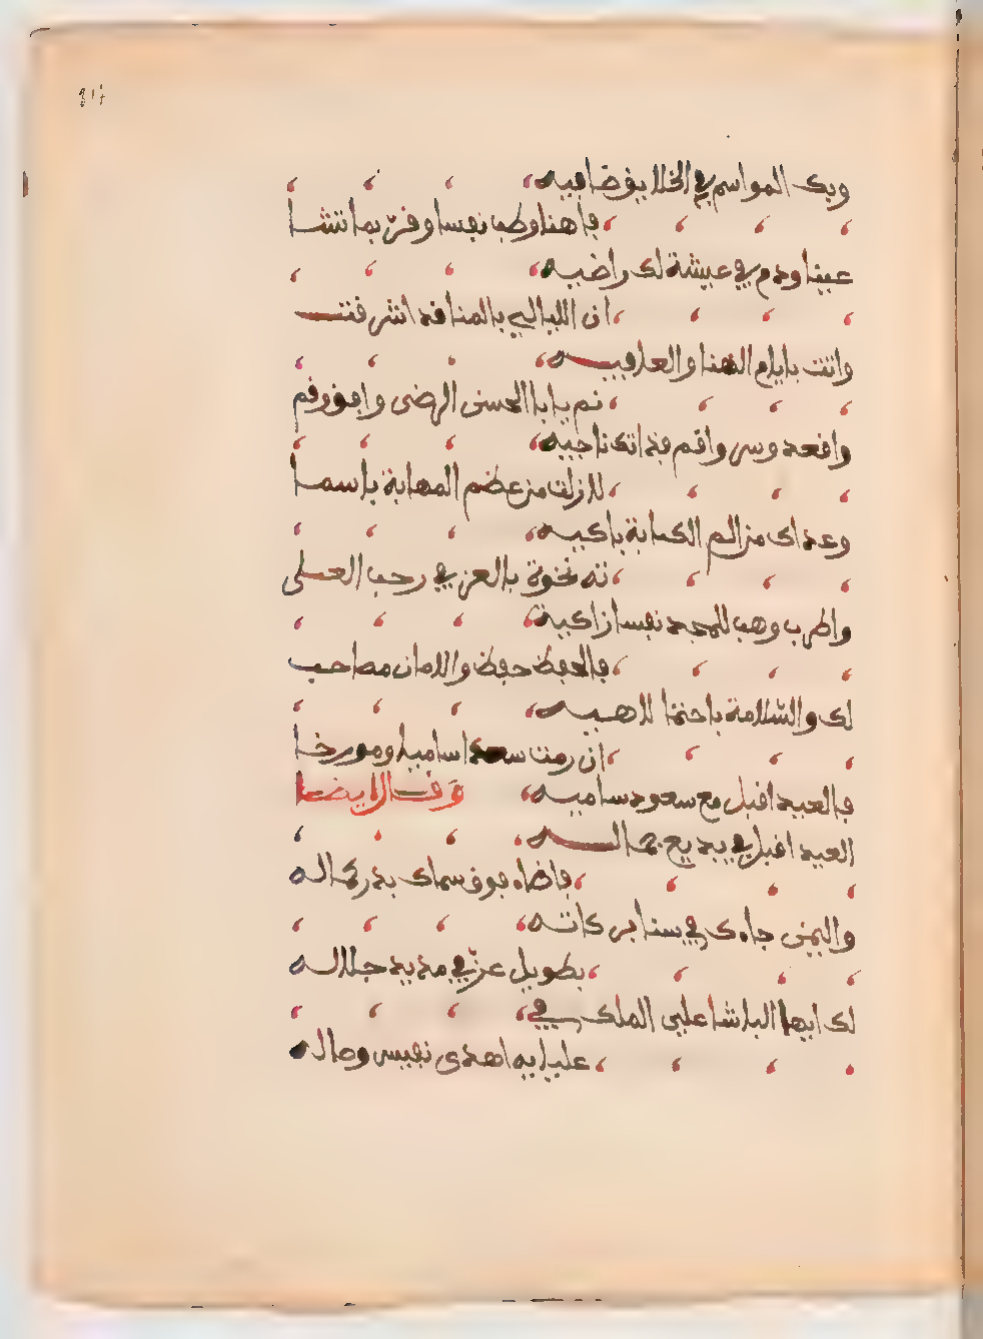 وبك المواسم في الخلايق ضافيه
فاهنا وطب نفسا وقرّ بما تشا
عينا ودم في عيشة لك راضيه
ان الليالي بالمنا قد اشرقت
واتت بايام الهنا والعافيه
نم يا ابا الحسن الرضى وافو وقم
واقعد وسر واقم فذاتك ناجيه
لازلت من عضم المهابة باسما
وعداك من الم الكئابة باكيه
ته نخوة بالعز في رحب العلى
واطرب وهب للمجد نفسا زاكية
فالحفظ حفظ والامان مصاحب
لك والسّلامة باحتما لاهيه
ان رمت سعدا ساميا ومورخا
فالعيد اقبل مع سعود ساميه
وقال ايضا
العيد اقبل في بديع جماله
فاضاء فوق سماك بدر كماله
واليمن جاءك في سنا بركاته
بطويل عزّ في مديد جلاله
لك ايها الباشا علي الملك في
عليايه اهدى نفيس وصاله